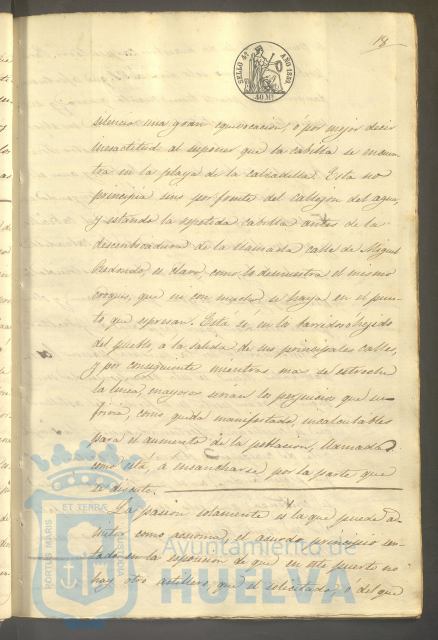 18
SELLO 4º AÑO 1862
40 Ms
silencio una gran equivocacion, ó por mejor decir
inesactitud al suponer que la cabilla se encuen-
tra en la playa de la calzadilla. Esta no
principia sino por frente del callejon del agua,
y estando la repetida cabilla antes de la
desembocadura de la llamada calle de Miguel
Redondo, es claro, como lo demuestra el mismo
croquis, que ni con mucho se haya en el pun-
to que espresan. Está sí, en la barrida ó hegido
del pueblo a la salida de sus principales calles,
y por consiguiente mientras mas se estreche
la linea, mayores seran los perjuicios que su-
frirá, como queda manifestado, incalculables
para el aumento de la poblacion, llamada
como está, á ensancharse por la parte que
se disputa.
La pasion solamente es la que puede ad-
mitir como acsioma, el aserto principio sen-
tado en la esposicion de que en este puerto no
hay otro astillero que el solicitado, ó del que
PORTUS MARIS ET TERRÆ CUSTODIA
Ayuntamiento de
HUELVA